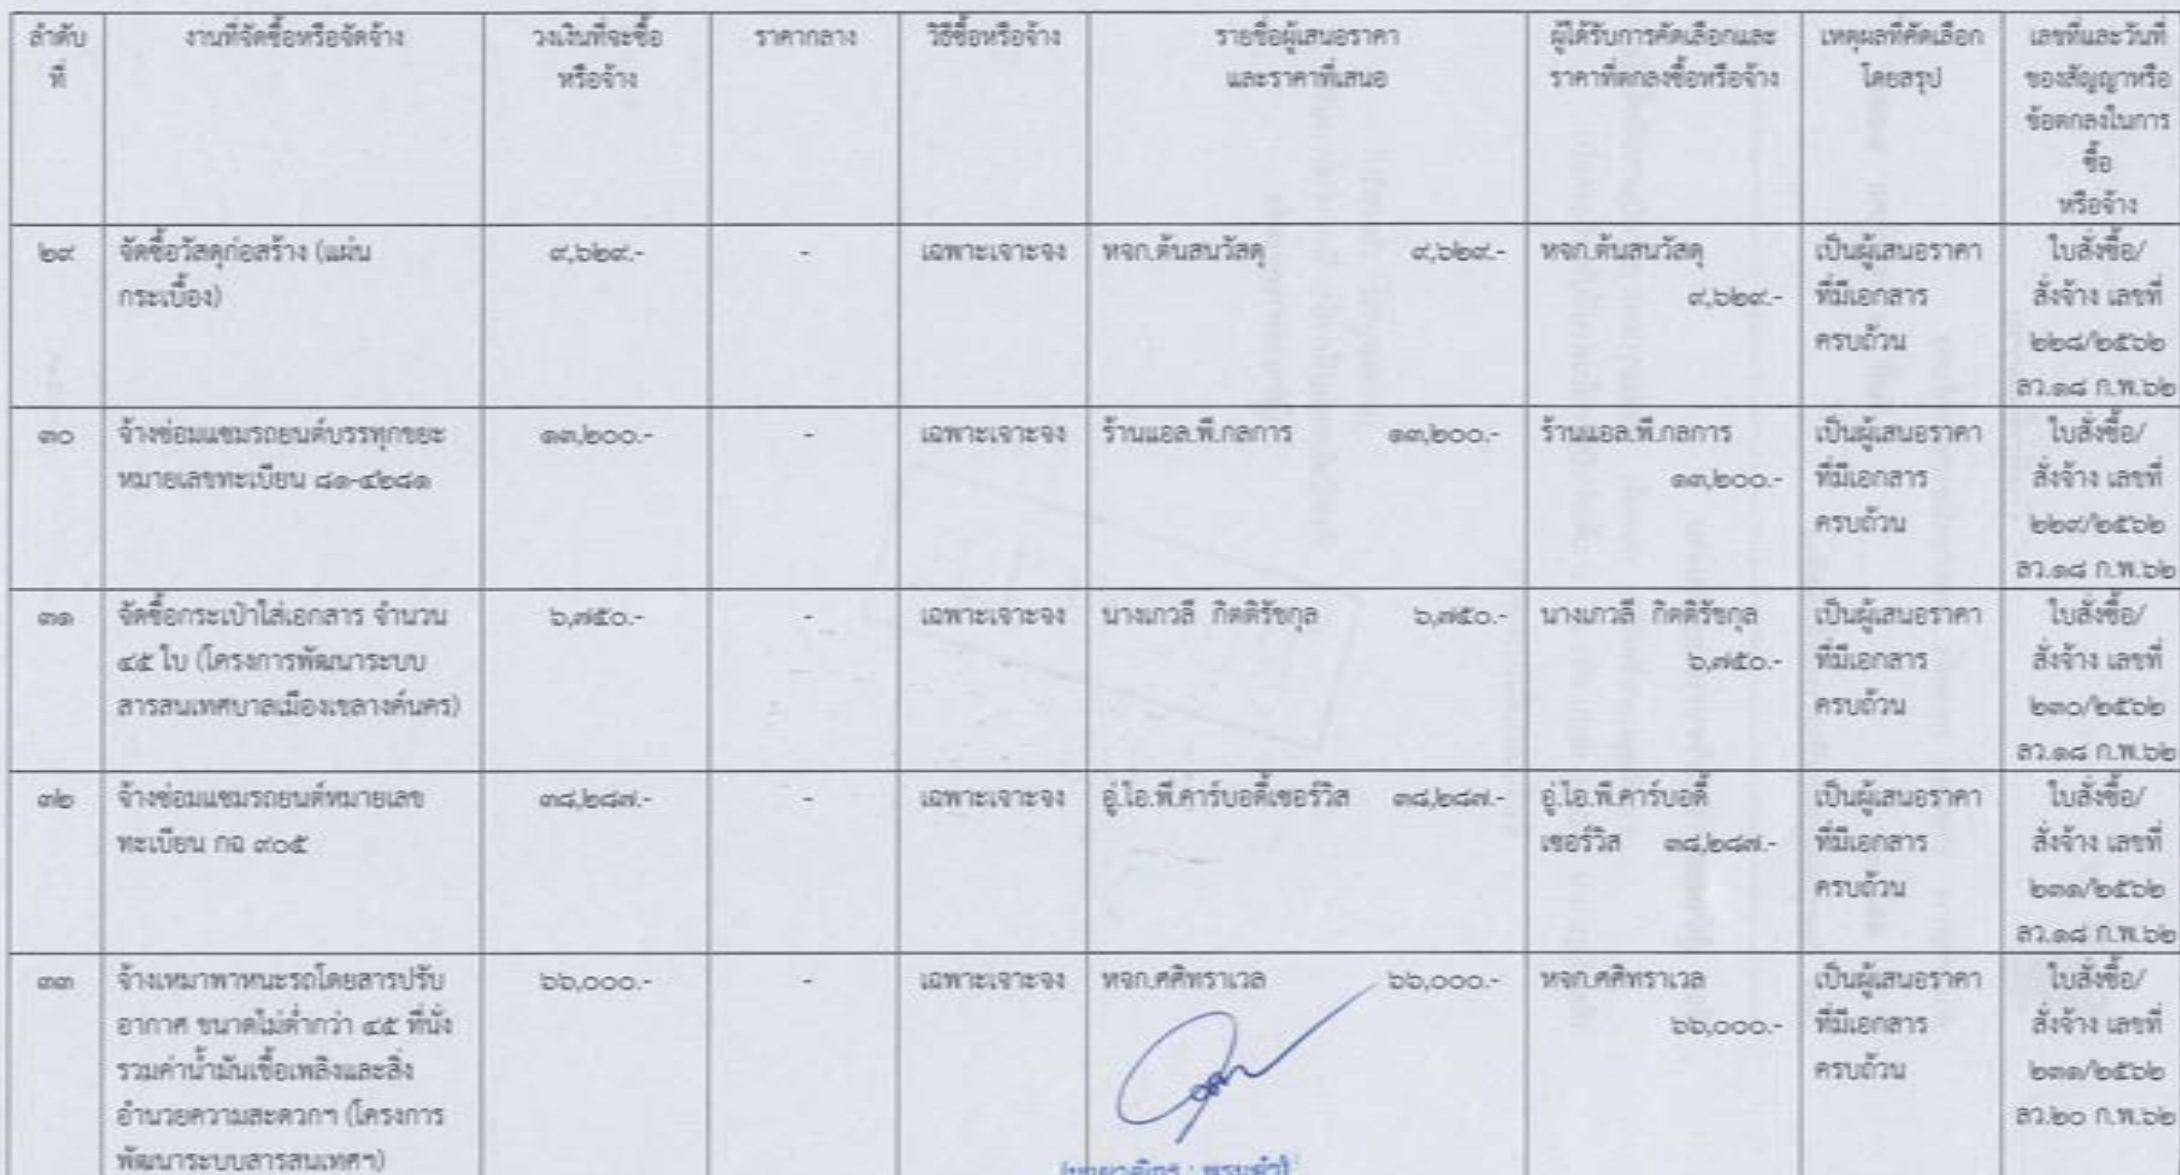 ลำดับ
ที่
งานที่จัดซื้อหรือจัดจ้าง
วงเงินที่จะซื้อ
หรือจ้าง
ราคากลาง
วิธีซื้อหรือจ้าง
รายชื่อผู้เสนอราคา
และราคาที่เสนอ
ผู้ได้รับการคัดเลือกและ
ราคาที่ตกลงซื้อหรือจ้าง
เหตุผลที่คัดเลือก
โดยสรุป
เลขที่และวันที่
ของสัญญาหรือ
ข้อตกลงในการ
ซื้อ
หรือจ้าง
๒๙
จัดซื้อวัสดุก่อสร้าง (แผ่น
กระเบื้อง)
๙,๖๒๙.-
-
เฉพาะเจาะจง
หจก.ต้นสนวัสดุ ๙,๖๒๙.-
หจก.ต้นสนวัสดุ
๙,๖๒๙.-
เป็นผู้เสนอราคา
ที่มีเอกสาร
ครบถ้วน
ใบสั่งซื้อ/
สั่งจ้าง เลขที่
๒๒๘/๒๕๖๒
ลว.๑๘ ก.พ.๖๒
๓๐
จ้างซ่อมแซมรถยนต์บรรทุกขยะ
หมายเลขทะเบียน ๘๑-๔๒๘๑
๑๓,๒๐๐.-
-
เฉพาะเจาะจง
ร้านแอล.พี.กลการ ๑๓,๒๐๐.-
ร้านแอล.พี.กลการ
๑๓,๒๐๐.-
เป็นผู้เสนอราคา
ที่มีเอกสาร
ครบถ้วน
ใบสั่งซื้อ/
สั่งจ้าง เลขที่
๒๒๙/๒๕๖๒
ลว.๑๘ ก.พ.๖๒
๓๑
จัดซื้อกระเป๋าใส่เอกสาร จำนวน
๔๕ ใบ (โครงการพัฒนาระบบ
สารสนเทศบาลเมืองเขลางค์นคร)
๖,๗๕๐.-
-
เฉพาะเจาะจง
นางเกวลี กิตติรัชกุล ๖,๗๕๐.-
นางเกวลี กิตติรัชกุล
๖,๗๕๐.-
เป็นผู้เสนอราคา
ที่มีเอกสาร
ครบถ้วน
ใบสั่งซื้อ/
สั่งจ้าง เลขที่
๒๓๐/๒๕๖๒
ลว.๑๘ ก.พ.๖๒
๓๒
จ้างซ่อมแซมรถยนต์หมายเลข
ทะเบียน กฉ ๙๐๕
๓๘,๒๘๗.-
-
เฉพาะเจาะจง
อู่.ไอ.พี.คาร์บอดี้เซอร์วิส ๓๘,๒๘๗.-
อู่.ไอ.พี.คาร์บอดี้
เซอร์วิส ๓๘,๒๘๗.-
เป็นผู้เสนอราคา
ที่มีเอกสาร
ครบถ้วน
ใบสั่งซื้อ/
สั่งจ้าง เลขที่
๒๓๑/๒๕๖๒
ลว.๑๘ ก.พ.๖๒
๓๓
จ้างเหมาพาหนะรถโดยสารปรับ
อากาศ ขนาดไม่ต่ำกว่า ๔๕ ที่นั่ง
รวมค่าน้ำมันเชื้อเพลิงและสิ่ง
อำนวยความสะดวกฯ (โครงการ
พัฒนาระบบสารสนเทศฯ)
๖๖,๐๐๐.-
-
เฉพาะเจาะจง
หจก.ศศิทราเวล ๖๖,๐๐๐.-
หจก.ศศิทราเวล
๖๖,๐๐๐.-
เป็นผู้เสนอราคา
ที่มีเอกสาร
ครบถ้วน
ใบสั่งซื้อ/
สั่งจ้าง เลขที่
๒๓๑/๒๕๖๒
ลว.๒๐ ก.พ.๖๒